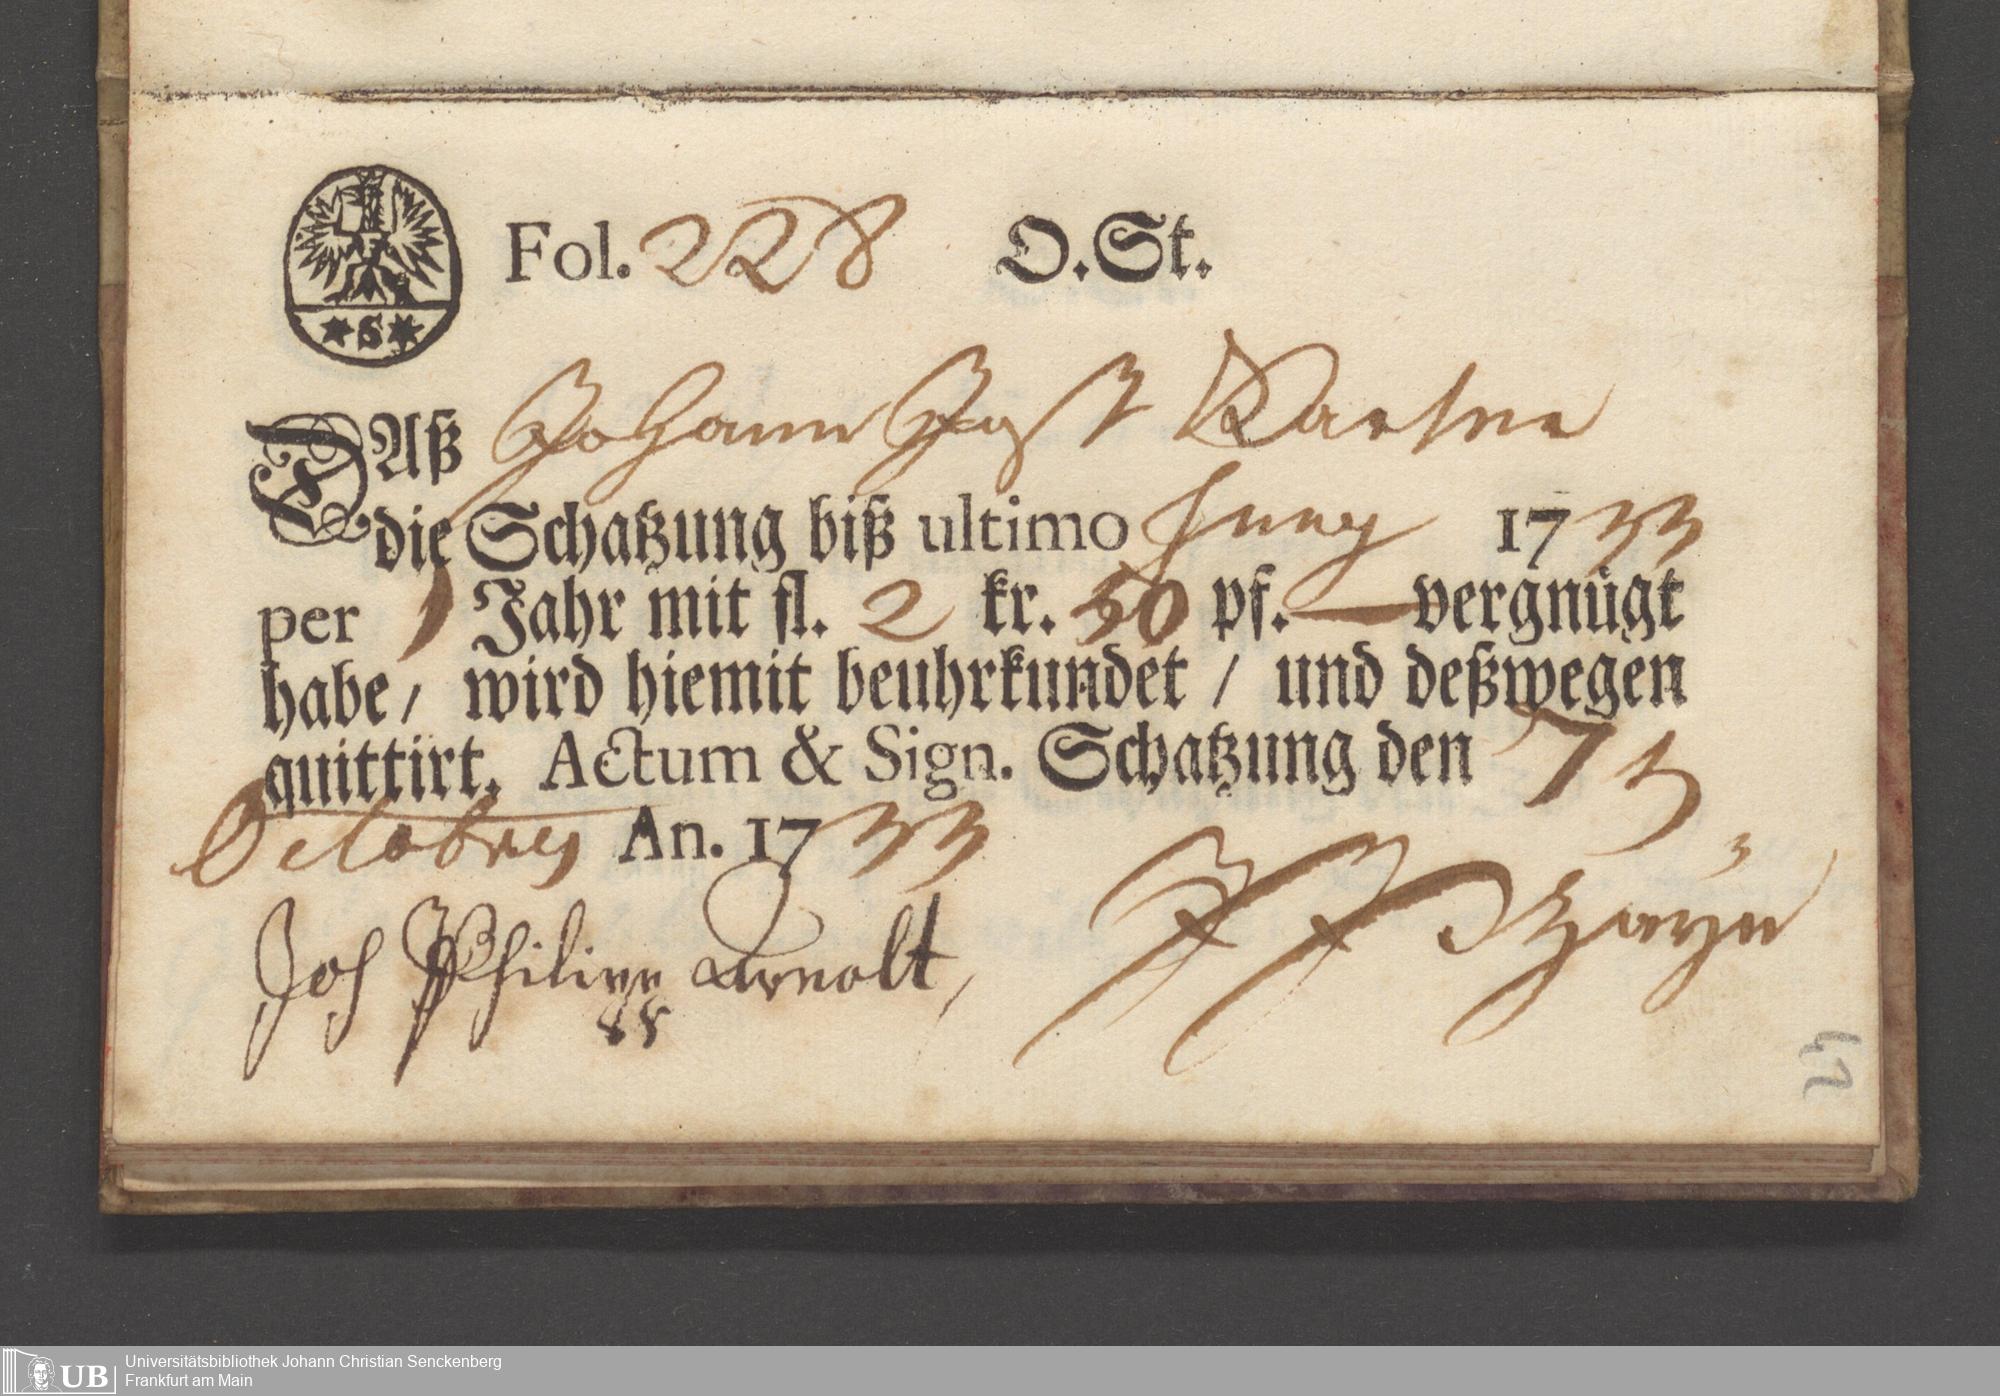 Fol. 228 O.St.
*S*
DAß Johann Jost
die Schatzung biß ultimo Juny 1733
per 1 Jahr mit fl. 2 kr. 50 pf. — vergnügt
habe / wird hiemit beuhrkundet / und deßwegen
quittirt. Actum & Sign. Schatzung den 7
Octobris An. 1733
Joh Philipp Arnolt,
Universitätsbibliothek Johann Christian Senckenberg
Frankfurt am Main
UB